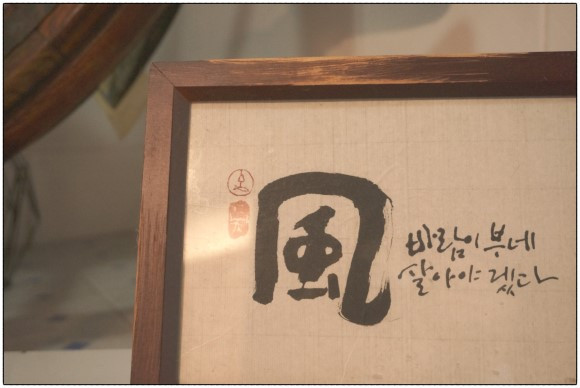 風
바람이 부네
살아야 겠다